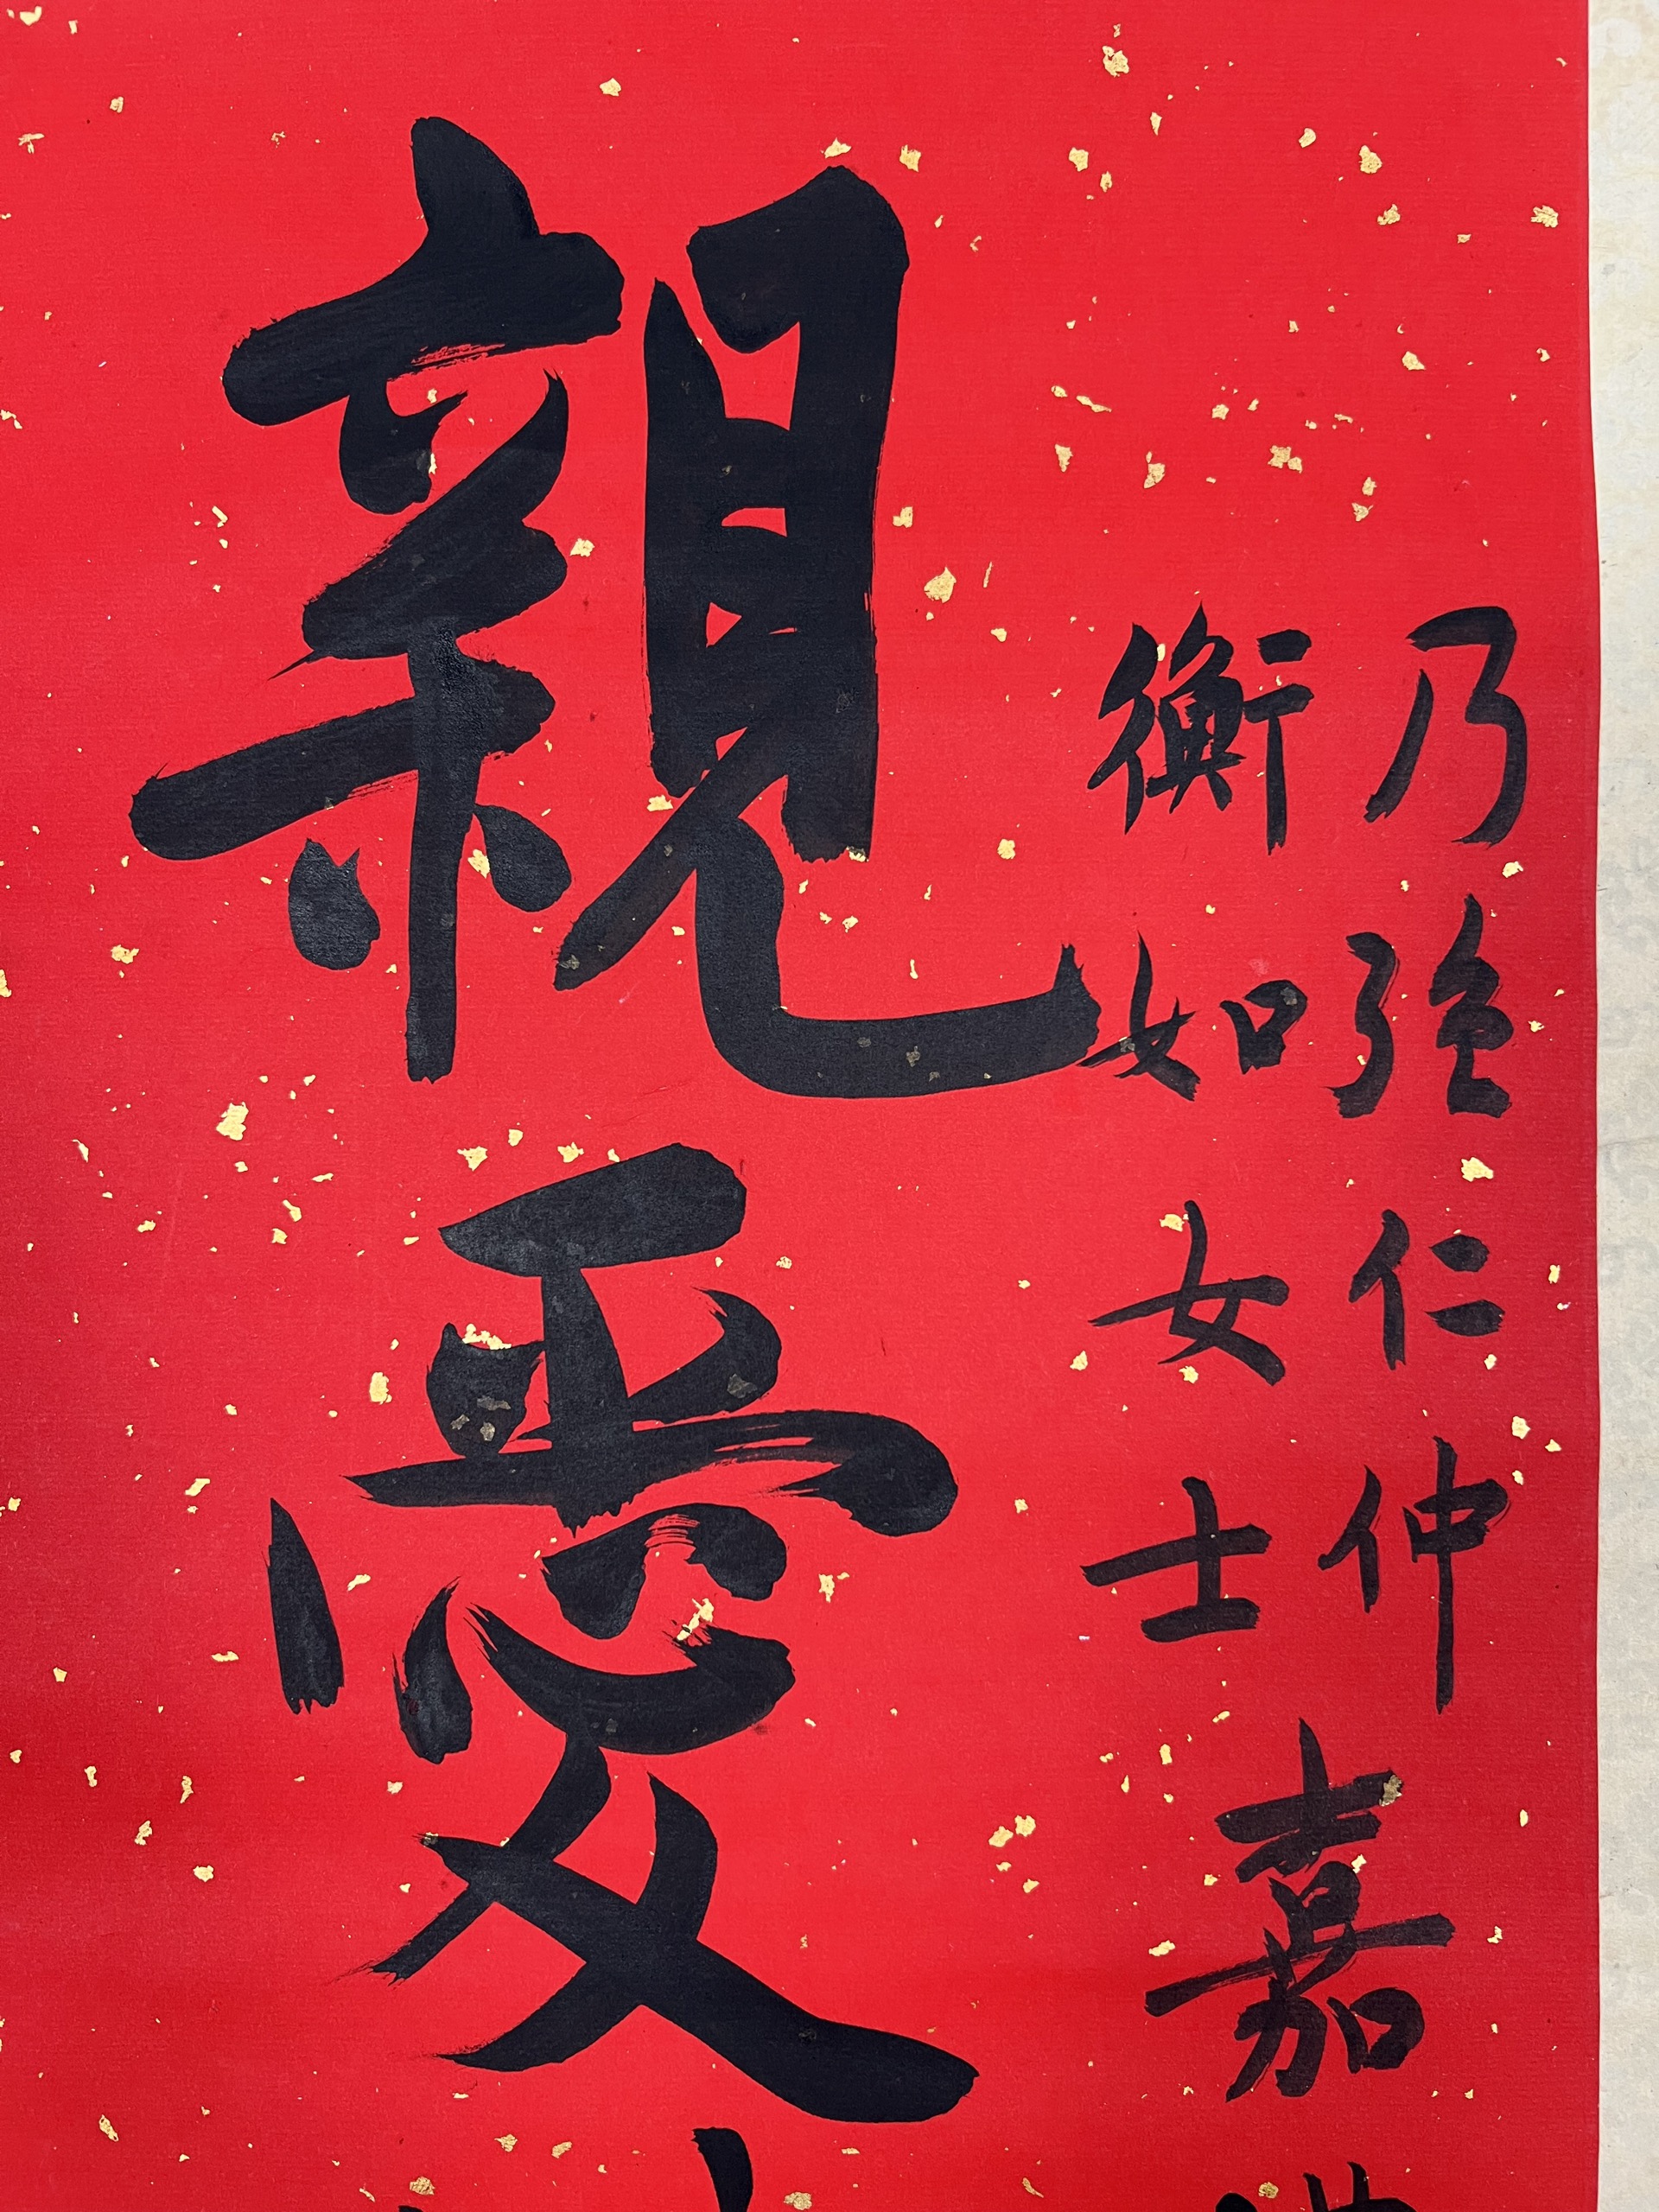 乃強仁仲
衡如女士
嘉禮
親愛